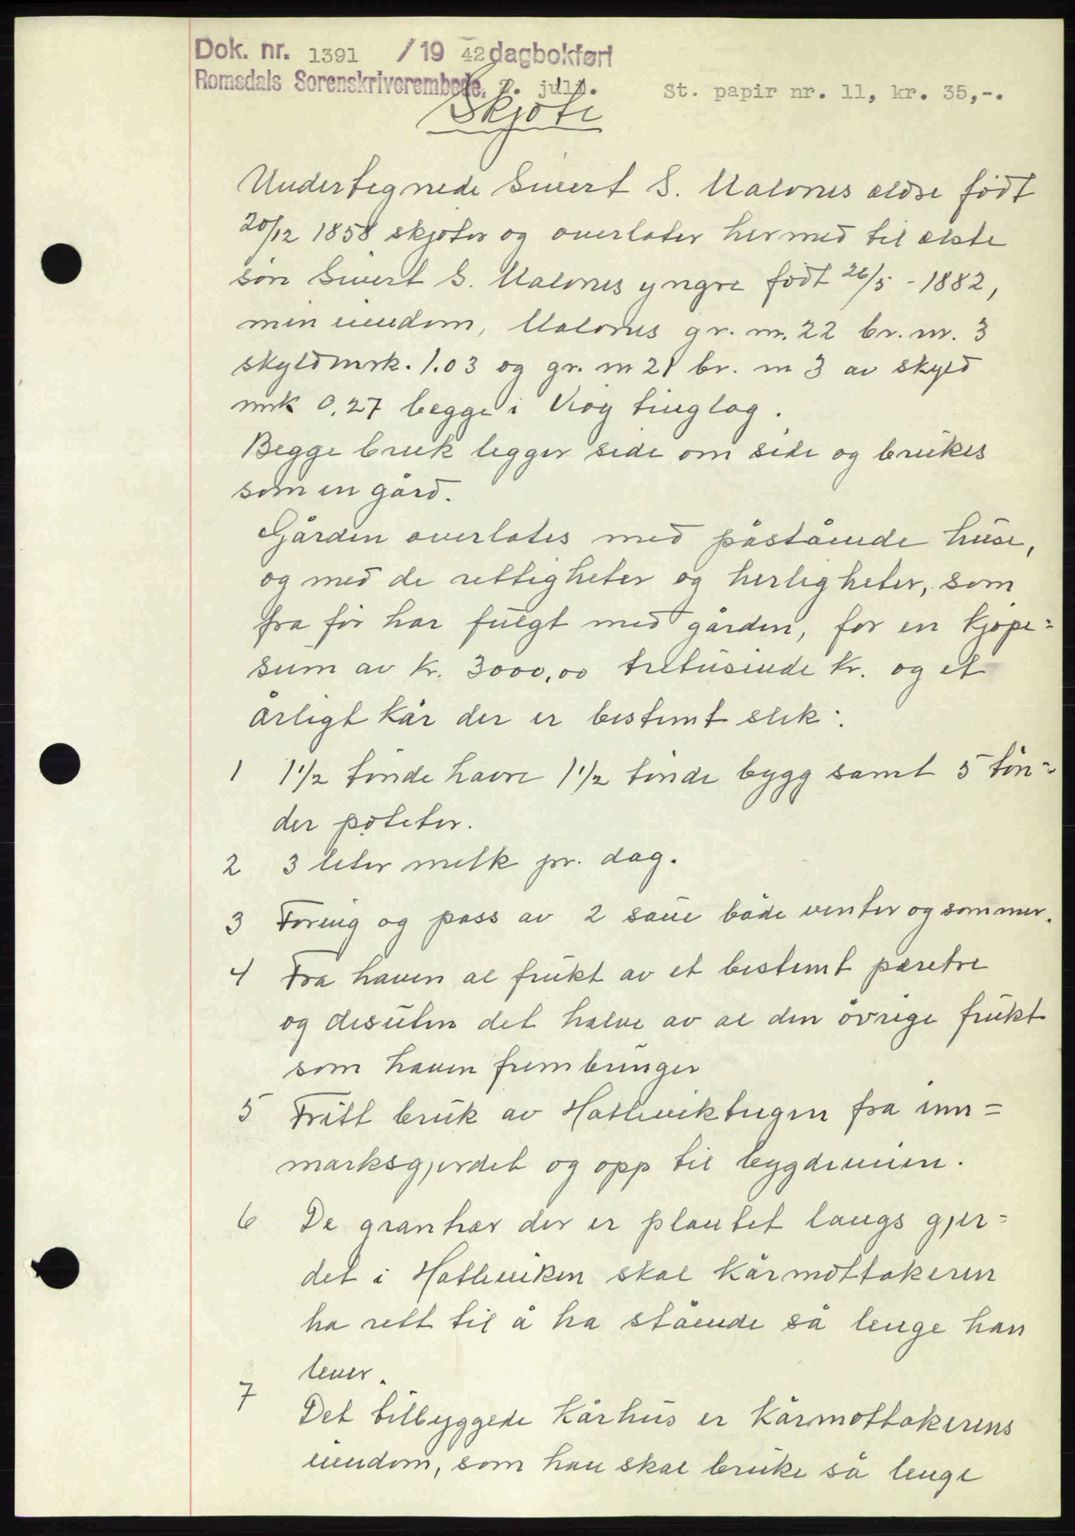 Dok. nr. 1391 /19 42 dagbokført
Romsdals Sorenskriverembede, 2. juli.
St. papir nr. 11, kr. 35,-.
Skjøte
Undertegnede Sivert S. Malones ældre født
20/12 1858 skjøter og overlater hermed til elste
søn Sivert S. Malones yngre født 26/5 - 1882,
min eiendom, Malones gr. nr. 22 br. nr. 3
skyldmrk. 1.03 og gr. nr 21 br. nr 3 av skyld
mrk 0.27 begge i Veøy tinglag.
Begge bruk legger side om side og brukes
som en gård.
Gården overlates med påstående huse,
og med de rettigheter og herligheter, som
fra før har fulgt med gården, for en kjøpe=
sum av kr. 3000,00 tretusinde kr. og et
årligt kår der er bestemt slik:
1 1 1/2 tønde havre 1 1/2 tønde bygg samt 5 tøn=
der poteter.
2 3 liter melk pr. dag.
3 Foring og pass av 2 saue både venter og sommer.
4 Fra haven al frukt av et bestemt pæretre
og desuten det halve av al den øvrige frukt
som haven frembringer
5 Fritt bruk av Hatleviktugen fra inn=
marksgjerdet og opp til bygdeveien.
6 De grantrær der er plantet langs gjer=
det i Hatleviken skal kårmottakeren
ha rett til å ha stående så lenge han
lever.
7 Det tilbyggede kårhus er kårmottakerens
eiendom, som han skal bruke så lenge